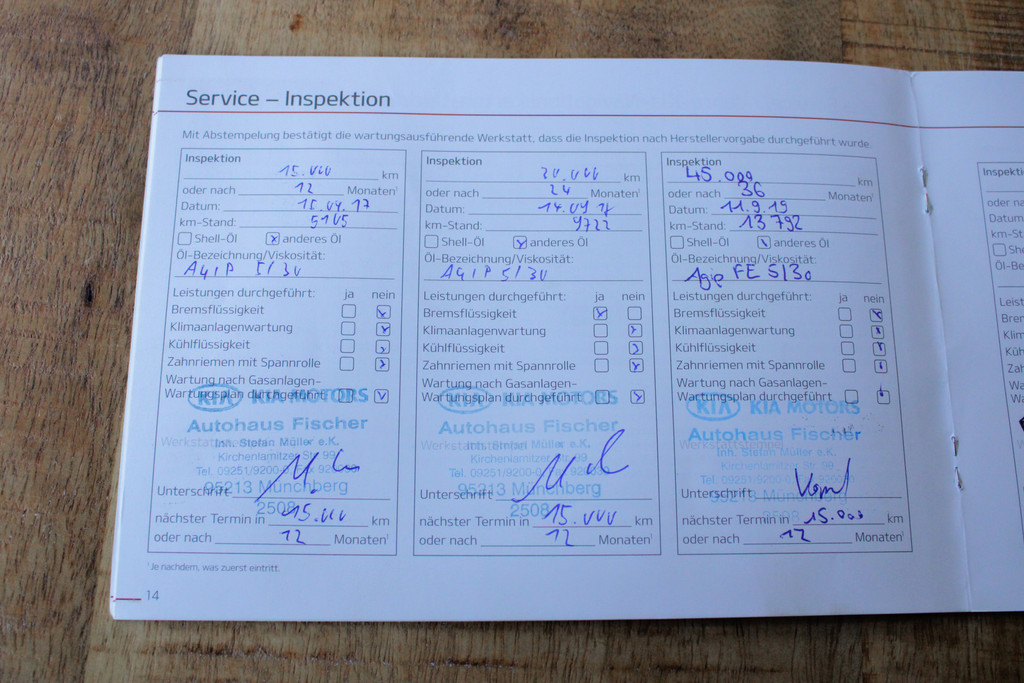 Service – Inspektion
Mit Abstempelung bestätigt die wartungsausführende Werkstatt, dass die Inspektion nach Herstellervorgabe durchgeführt wurde.
Inspektion
15.000 km
oder nach 12 Monaten¹
Datum: 17
km-Stand: 5105
Shell-Öl x anderes Öl
Öl-Bezeichnung/Viskosität:
AGIP 5/30
Leistungen durchgeführt: ja nein
Bremsflüssigkeit x
Klimaanlagenwartung x
Kühlflüssigkeit x
Zahnriemen mit Spannrolle x
Wartung nach Gasanlagen-
Wartungsplan durchgeführt x
KIA KIA MOTORS
Autohaus Fischer
Inh. Stefan Müller e.K.
Kirchenlamitzer Str. 99
Tel. 09251/9200-0
95213 Münchberg
Unterschrift
2508
nächster Termin in 15.000 km
oder nach 12 Monaten¹
Inspektion
km
oder nach 24 Monaten¹
Datum: 14.09
km-Stand: 9722
Shell-Öl x anderes Öl
Öl-Bezeichnung/Viskosität:
AGIP 5/30
Leistungen durchgeführt: ja nein
Bremsflüssigkeit x
Klimaanlagenwartung x
Kühlflüssigkeit x
Zahnriemen mit Spannrolle x
Wartung nach Gasanlagen-
Wartungsplan durchgeführt x
KIA KIA MOTORS
Autohaus Fischer
Inh. Stefan Müller e.K.
Kirchenlamitzer Str. 99
Tel. 09251/9200-0
95213 Münchberg
Unterschrift
2508
nächster Termin in 15.000 km
oder nach 12 Monaten¹
Inspektion
45.000 km
oder nach 36 Monaten¹
Datum: 11.9.19
km-Stand: 13792
Shell-Öl x anderes Öl
Öl-Bezeichnung/Viskosität:
Agip FE 5/30
Leistungen durchgeführt: ja nein
Bremsflüssigkeit x
Klimaanlagenwartung x
Kühlflüssigkeit x
Zahnriemen mit Spannrolle x
Wartung nach Gasanlagen-
Wartungsplan durchgeführt x
KIA KIA MOTORS
Autohaus Fischer
Inh. Stefan Müller e.K.
Kirchenlamitzer Str. 99
Tel. 09251/9200-0
95213 Münchberg
Unterschrift
2508
nächster Termin in 15.000 km
oder nach 12 Monaten¹
¹Je nachdem, was zuerst eintritt.
14